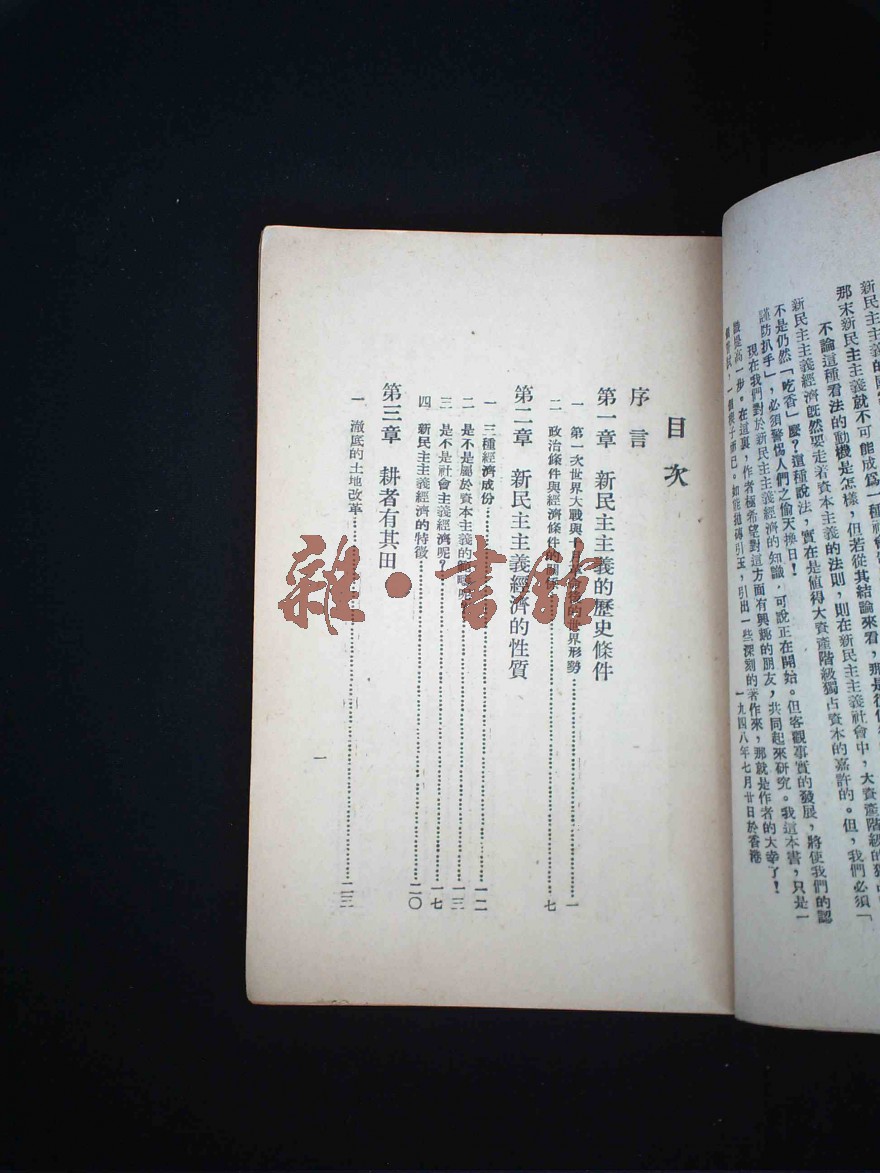 新民主主義的
那末新民主主義就不可能成爲一種社會
不論這種看法的動機是怎樣，但若從其結論來看，那是
新民主主義經濟旣然要走着資本主義的法則，則在新民主主義社會中，大資產階級的
不是仍然「吃香」麽？這種說法，實在是值得大資產階級獨占資本的嘉許的。但，我們必須「
謹防扒手」，必須警惕人們之偸天換日！
現在我們對於新民主主義經濟的知識，可說正在開始。但客觀事實的發展，將使我們的認
識提高一步。在這裏，作者極希望對這方面有興趣的朋友，共同起來研究。我這本書，只是一
個子而已。如能拋磚引玉，引出一些深刻的著作來，那就是作者的大幸了！
一九四八年七月廿日於香港
目次
序言
第一章 新民主主義的歷史條件
一 第一次世界大戰與十月的世界形勢……一
二 政治條件與經濟條件的關係……七
第二章 新民主主義經濟的性質
一 三種經濟成份……一二
二 是不是屬於資本主義的……一三
三 是不是社會主義經濟呢？……一七
四 新民主主義經濟的特徵……二〇
第三章 耕者有其田
一 澈底的土地改革……二三
一
雜·書館